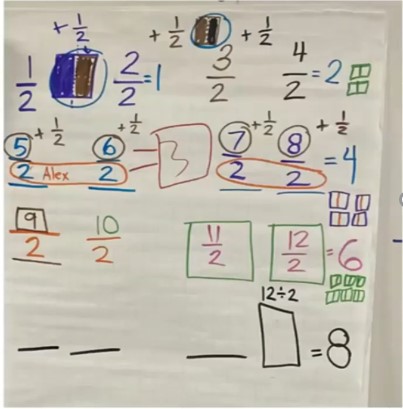 + 1/2 + 1/2 + 1/2
1/2 2/2 = 1 3/2 4/2 = 2
+ 1/2 + 1/2 + 1/2 + 1/2
5/2 6/2 = 3 7/2 8/2 = 4
Alex
9/2 10/2 11/2 12/2 = 6
12÷2
= 8